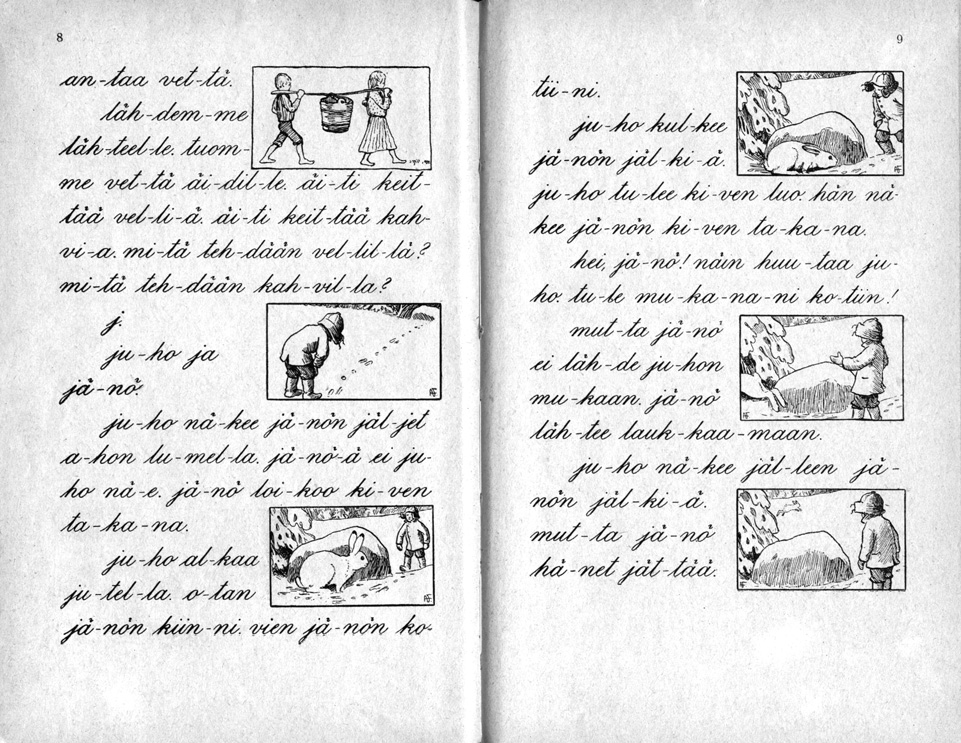 8
an-taa vet-tä.
läh-dem-me
läh-teel-le. tuom-
me vet-tä äi-dil-le. äi-ti keit-
tää vel-li-ä. äi-ti keit-tää kah-
vi-a. mi-tä teh-dään vel-lil-lä?
mi-tä teh-dään kah-vil-la?
j.
ju-ho ja
jä-nö.
ju-ho nä-kee jä-nön jäl-jet
a-hon lu-mel-la. jä-nö-ä ei ju-
ho nä-e. jä-nö loi-koo ki-ven
ta-ka-na.
ju-ho al-kaa
ju-tel-la. o-tan
jä-nön kiin-ni. vien jä-nön ko-
9
tii-ni.
ju-ho kul-kee
jä-nön jäl-ki-ä.
ju-ho tu-lee ki-ven luo. hän nä-
kee jä-nön ki-ven ta-ka-na.
hei, jä-nö! näin huu-taa ju-
ho. tu-le mu-ka-na-ni ko-tiin!
mut-ta jä-nö
ei läh-de ju-hon
mu-kaan. jä-nö
läh-tee lauk-kaa-maan.
ju-ho nä-kee jäl-leen jä-
nön jäl-ki-ä.
mut-ta jä-nö
hä-net jät-tää.